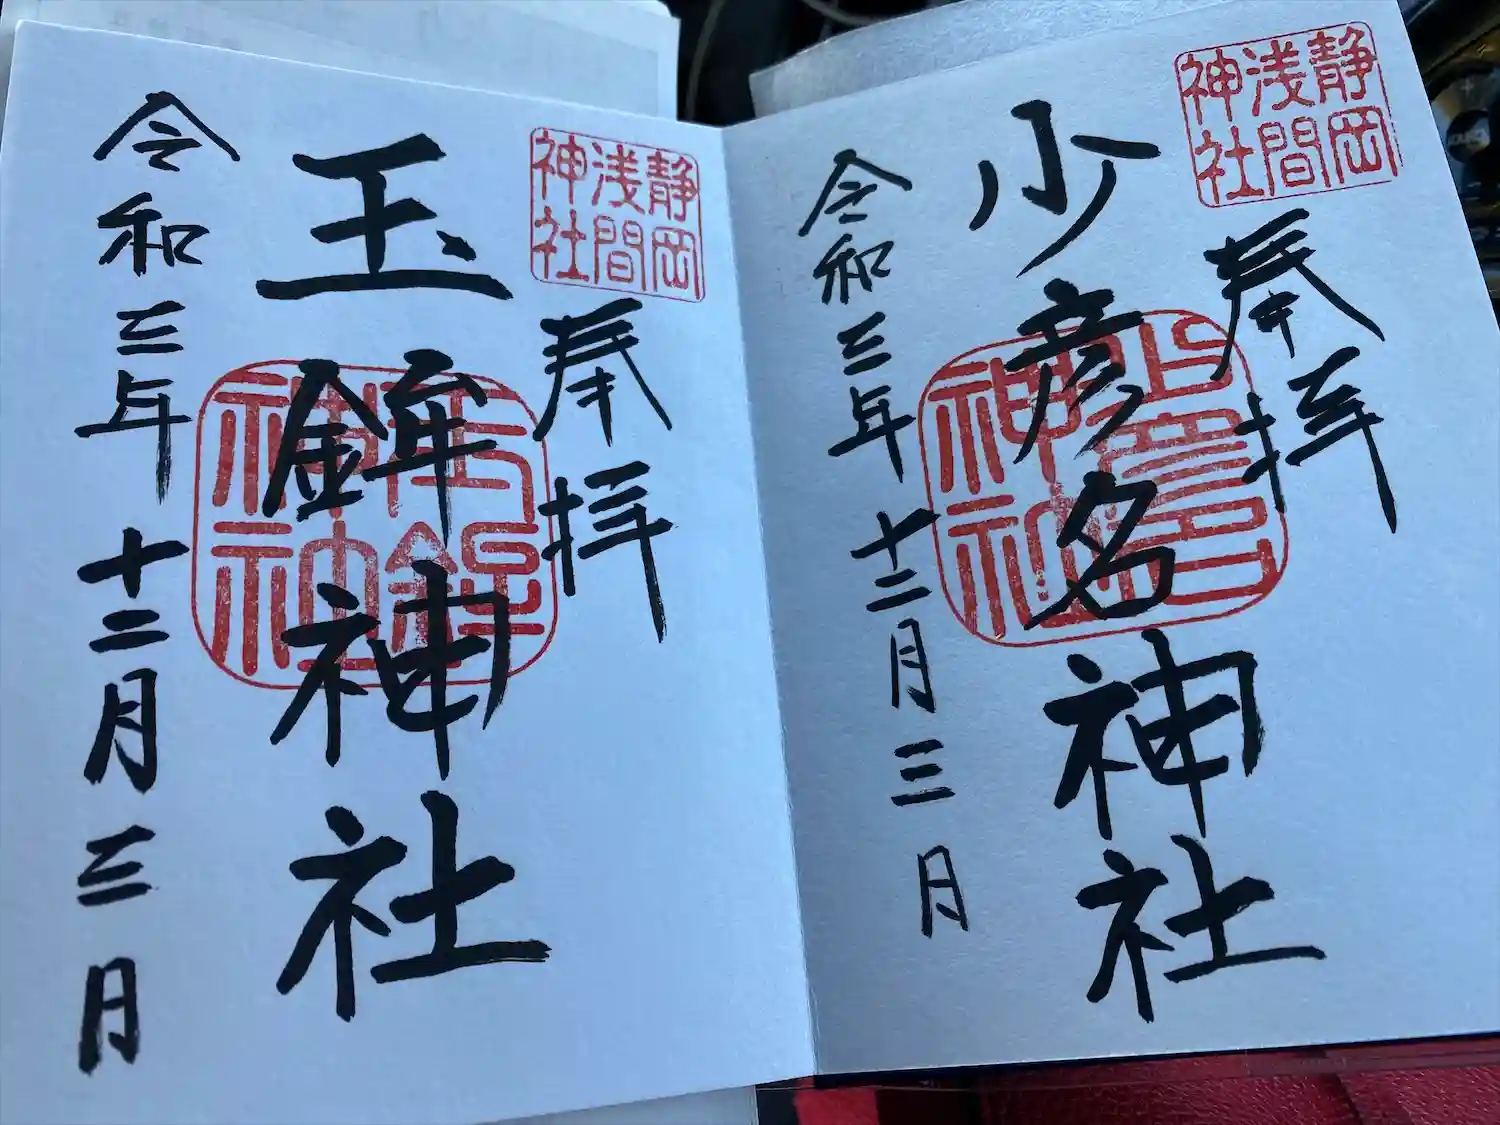 静岡
浅間
神社
奉拝
少彦名神社
少彦名
神社
令和三年十二月三日
静岡
浅間
神社
奉拝
玉鉾神社
玉鉾
神社
令和三年十二月三日